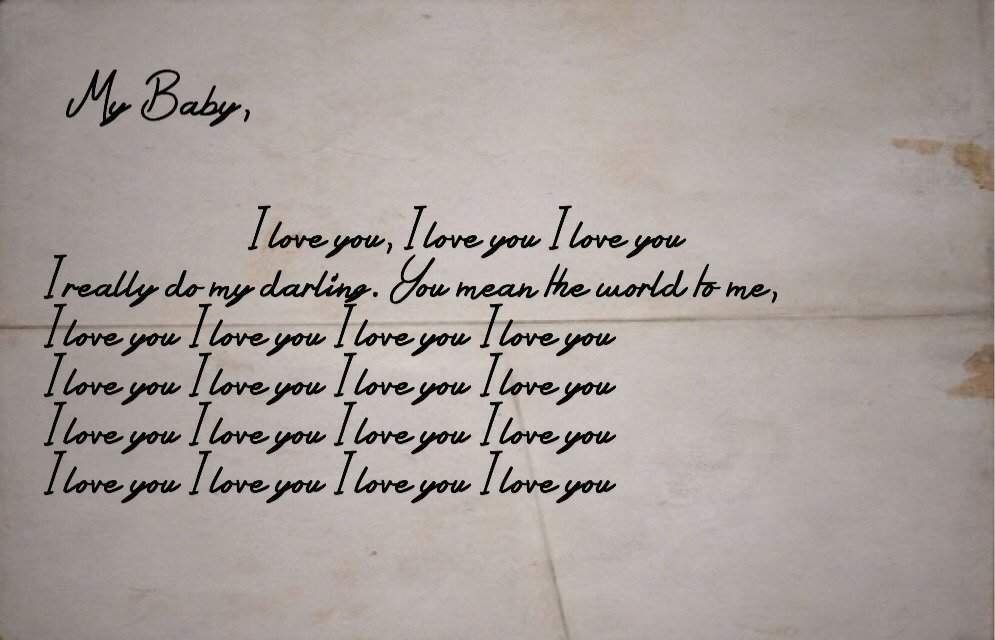 My Baby,
I love you, I love you I love you
I really do my darling. You mean the world to me,
I love you I love you I love you I love you
I love you I love you I love you I love you
I love you I love you I love you I love you
I love you I love you I love you I love you